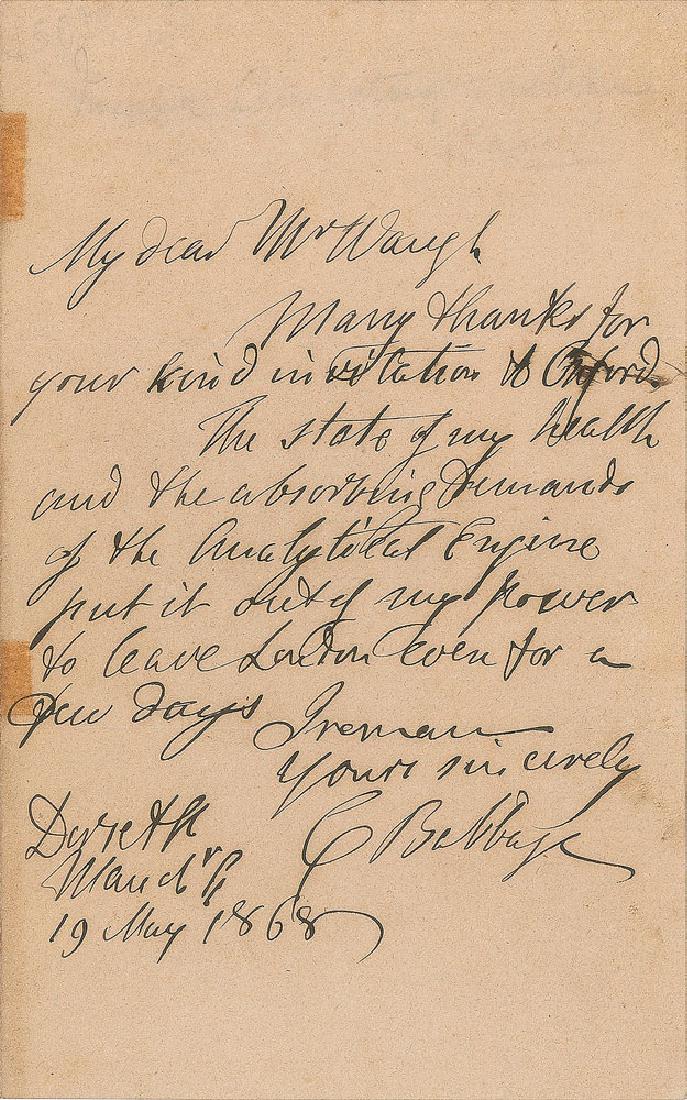 My dear Mr Waugh
Many thanks for
your kind invitation to Oxford
The state of my health
and the absorbing Demands
of the Analytical Engine
put it out of my power
to leave London even for a
few days
I remain
Yours sincerely
C Babbage
Dorset St
Manch r
19 May 1868